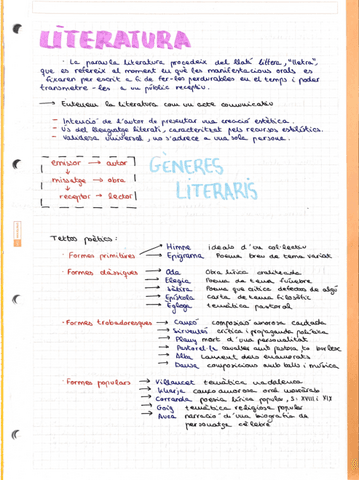 LITERATURA
· La paraula literatura procedeix del llatí littera, "lletra",
que es refereix al moment en què les manifestacions orals es
fixaren per escrit a fi de fer-les perdurables en el temps i poder
transmetre-les a un públic receptiu.
→ Entenem la literatura com un acte comunicatiu
- Intenció de l'autor de presentar una creació estètica.
- Ús del llenguatge literari, caracteritzat pels recursos estilístics.
- Validesa universal, no s'adreça a una sola persona.
emissor → autor
missatge → obra
receptor → lector
GÈNERES
LITERARIS
Textos poètics:
· Formes primitives → Himne ideals d'un col·lectiu
→ Epigrama Poema breu de tema variat
· Formes clàssiques → Oda Obra lírica
→ Elegia Poema de tema fúnebre
→ Sàtira Poema que critica defectes de algú
→ Epístola carta de tema filosòfic
→ Ègloga temàtica pastoral
· Formes trobadoresques → Cançó composició amorosa cantada
→ Sirventés crítica i propaganda política
→ Plany mort d'una personalitat
→ Pastorel·la cavaller amb pastora, to burlesc
→ Alba lament dels enamorats
→ Dansa composicions amb balls i música
· Formes populars → Villancet temàtica nadalenca
→ camp amorosa
→ Corranda poesia lírica popular, s. XVIII i XIX
→ Goig temàtica religiosa popular
→ Auca narració d'una biografia de
personatge cèlebre